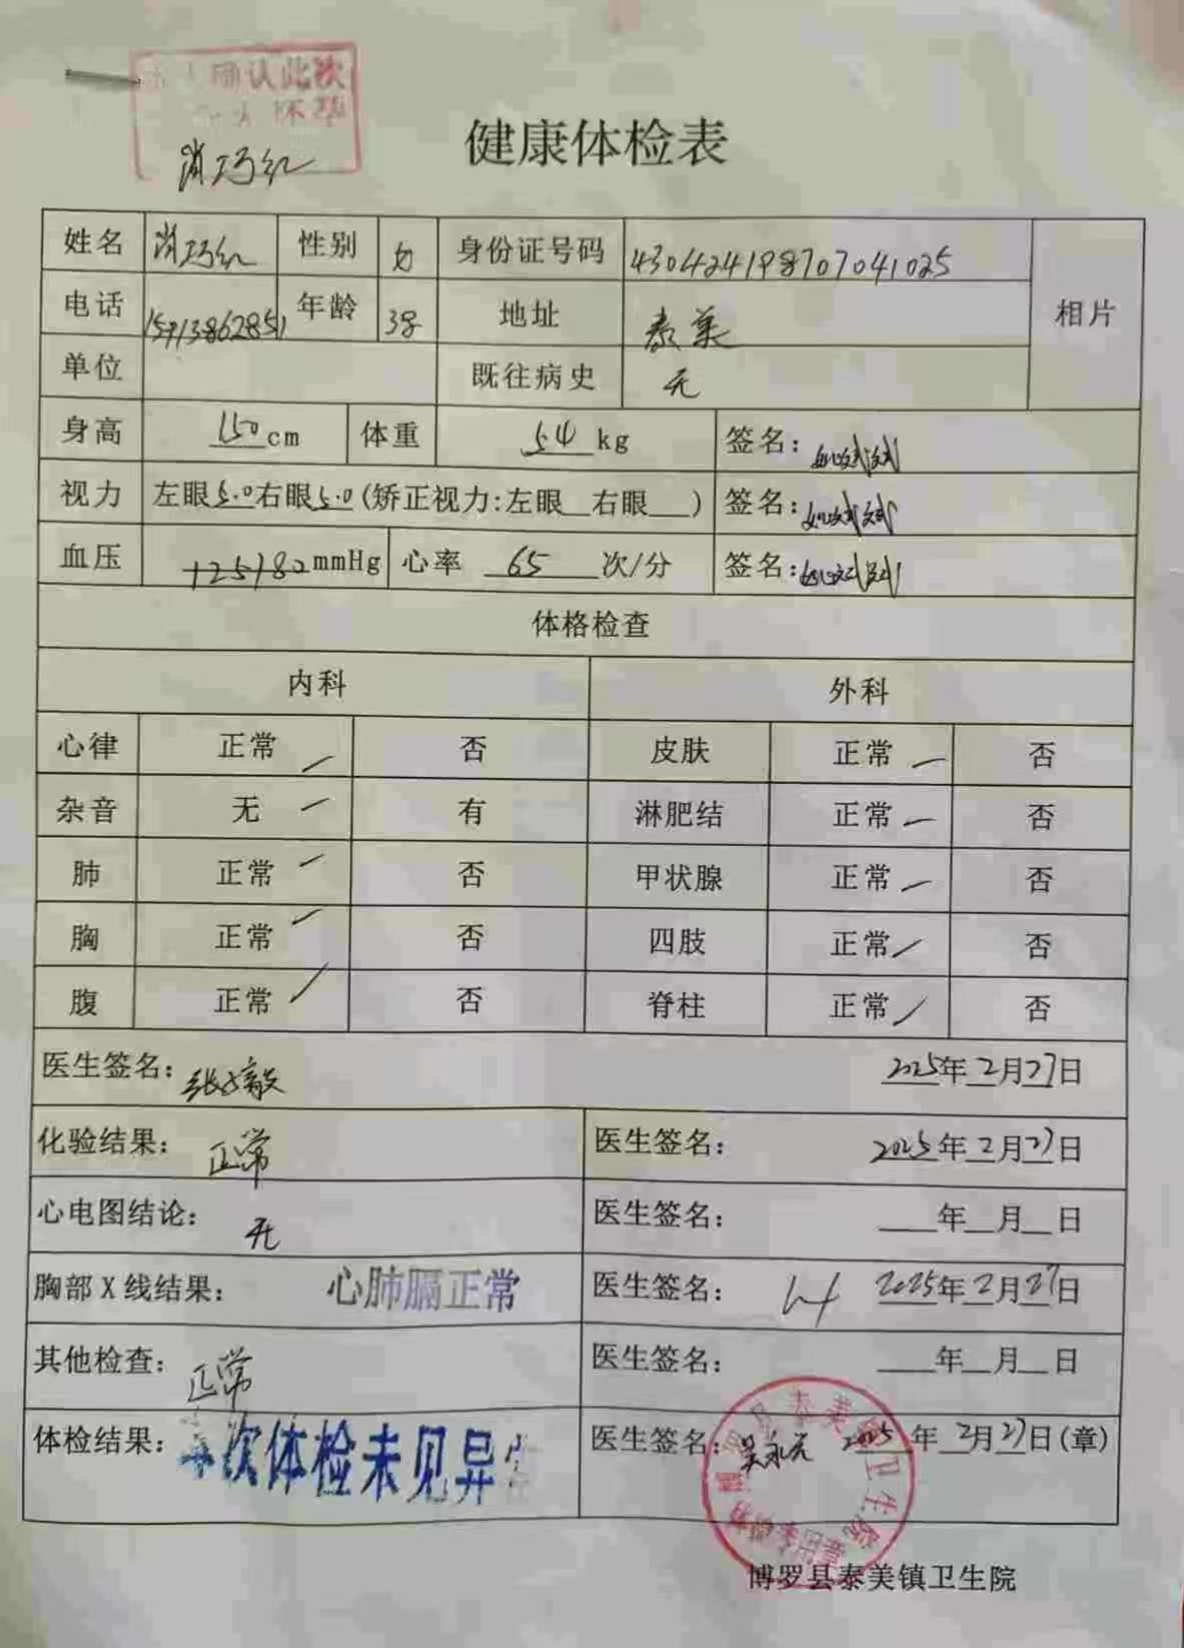 人确认此次
肖巧红
健康体检表
姓名 肖巧红 性别 女 身份证号码 430424198707041025 相片
电话 15913862851 年龄 38 地址 泰美
单位 既往病史 无
身高 150cm 体重 54 kg 签名：
视力 左眼5.0右眼5.0(矫正视力:左眼__右眼__) 签名：
血压 125/82mmHg 心率 65 次/分 签名：
体格检查
内科 外科
心律 正常 否 皮肤 正常 否
杂音 无 有 淋肥结 正常 否
肺 正常 否 甲状腺 正常 否
胸 正常 否 四肢 正常 否
腹 正常 否 脊柱 正常 否
医生签名： 2025年2月27日
化验结果： 正常 医生签名： 2025年2月27日
心电图结论： 无 医生签名： __年__月__日
胸部X线结果： 心肺膈正常 医生签名： 2025年2月27日
其他检查： 正常 医生签名： __年__月__日
体检结果： 本次体检未见异常 医生签名：吴永元 2025年2月27日(章)
博罗县泰美镇卫生院
博罗县泰美镇卫生院